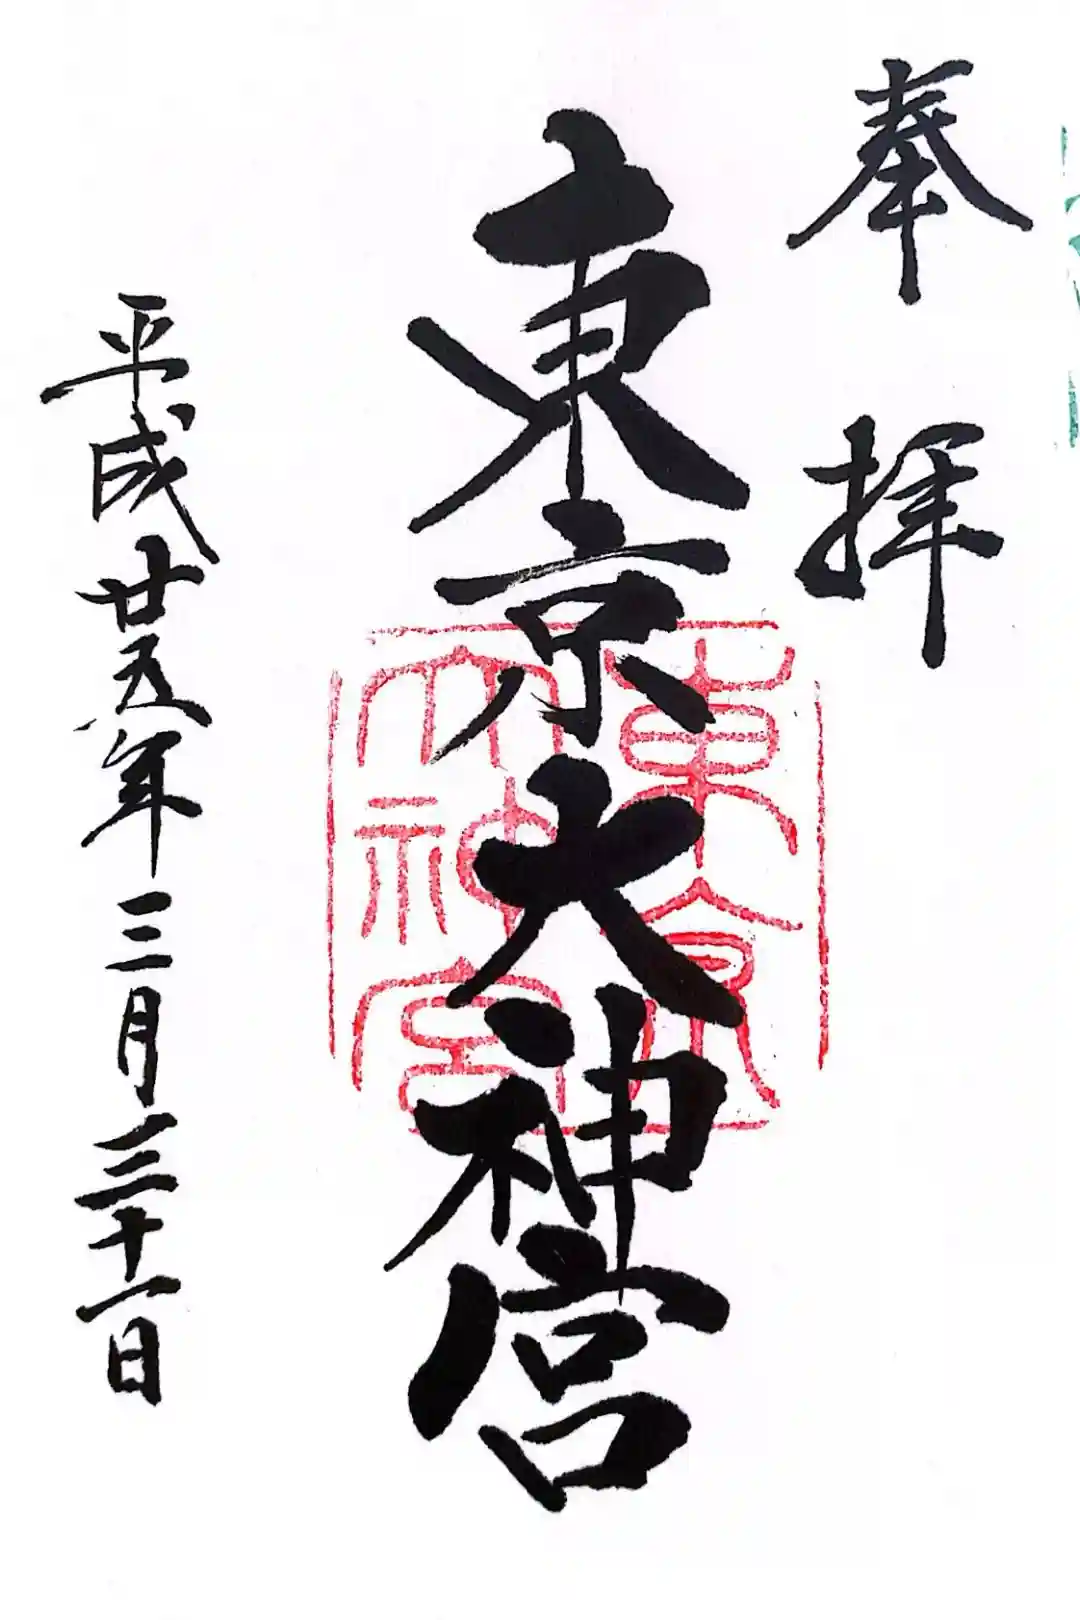 奉拝
東京大神宮
東京
大神宮
平成廿五年三月三十一日